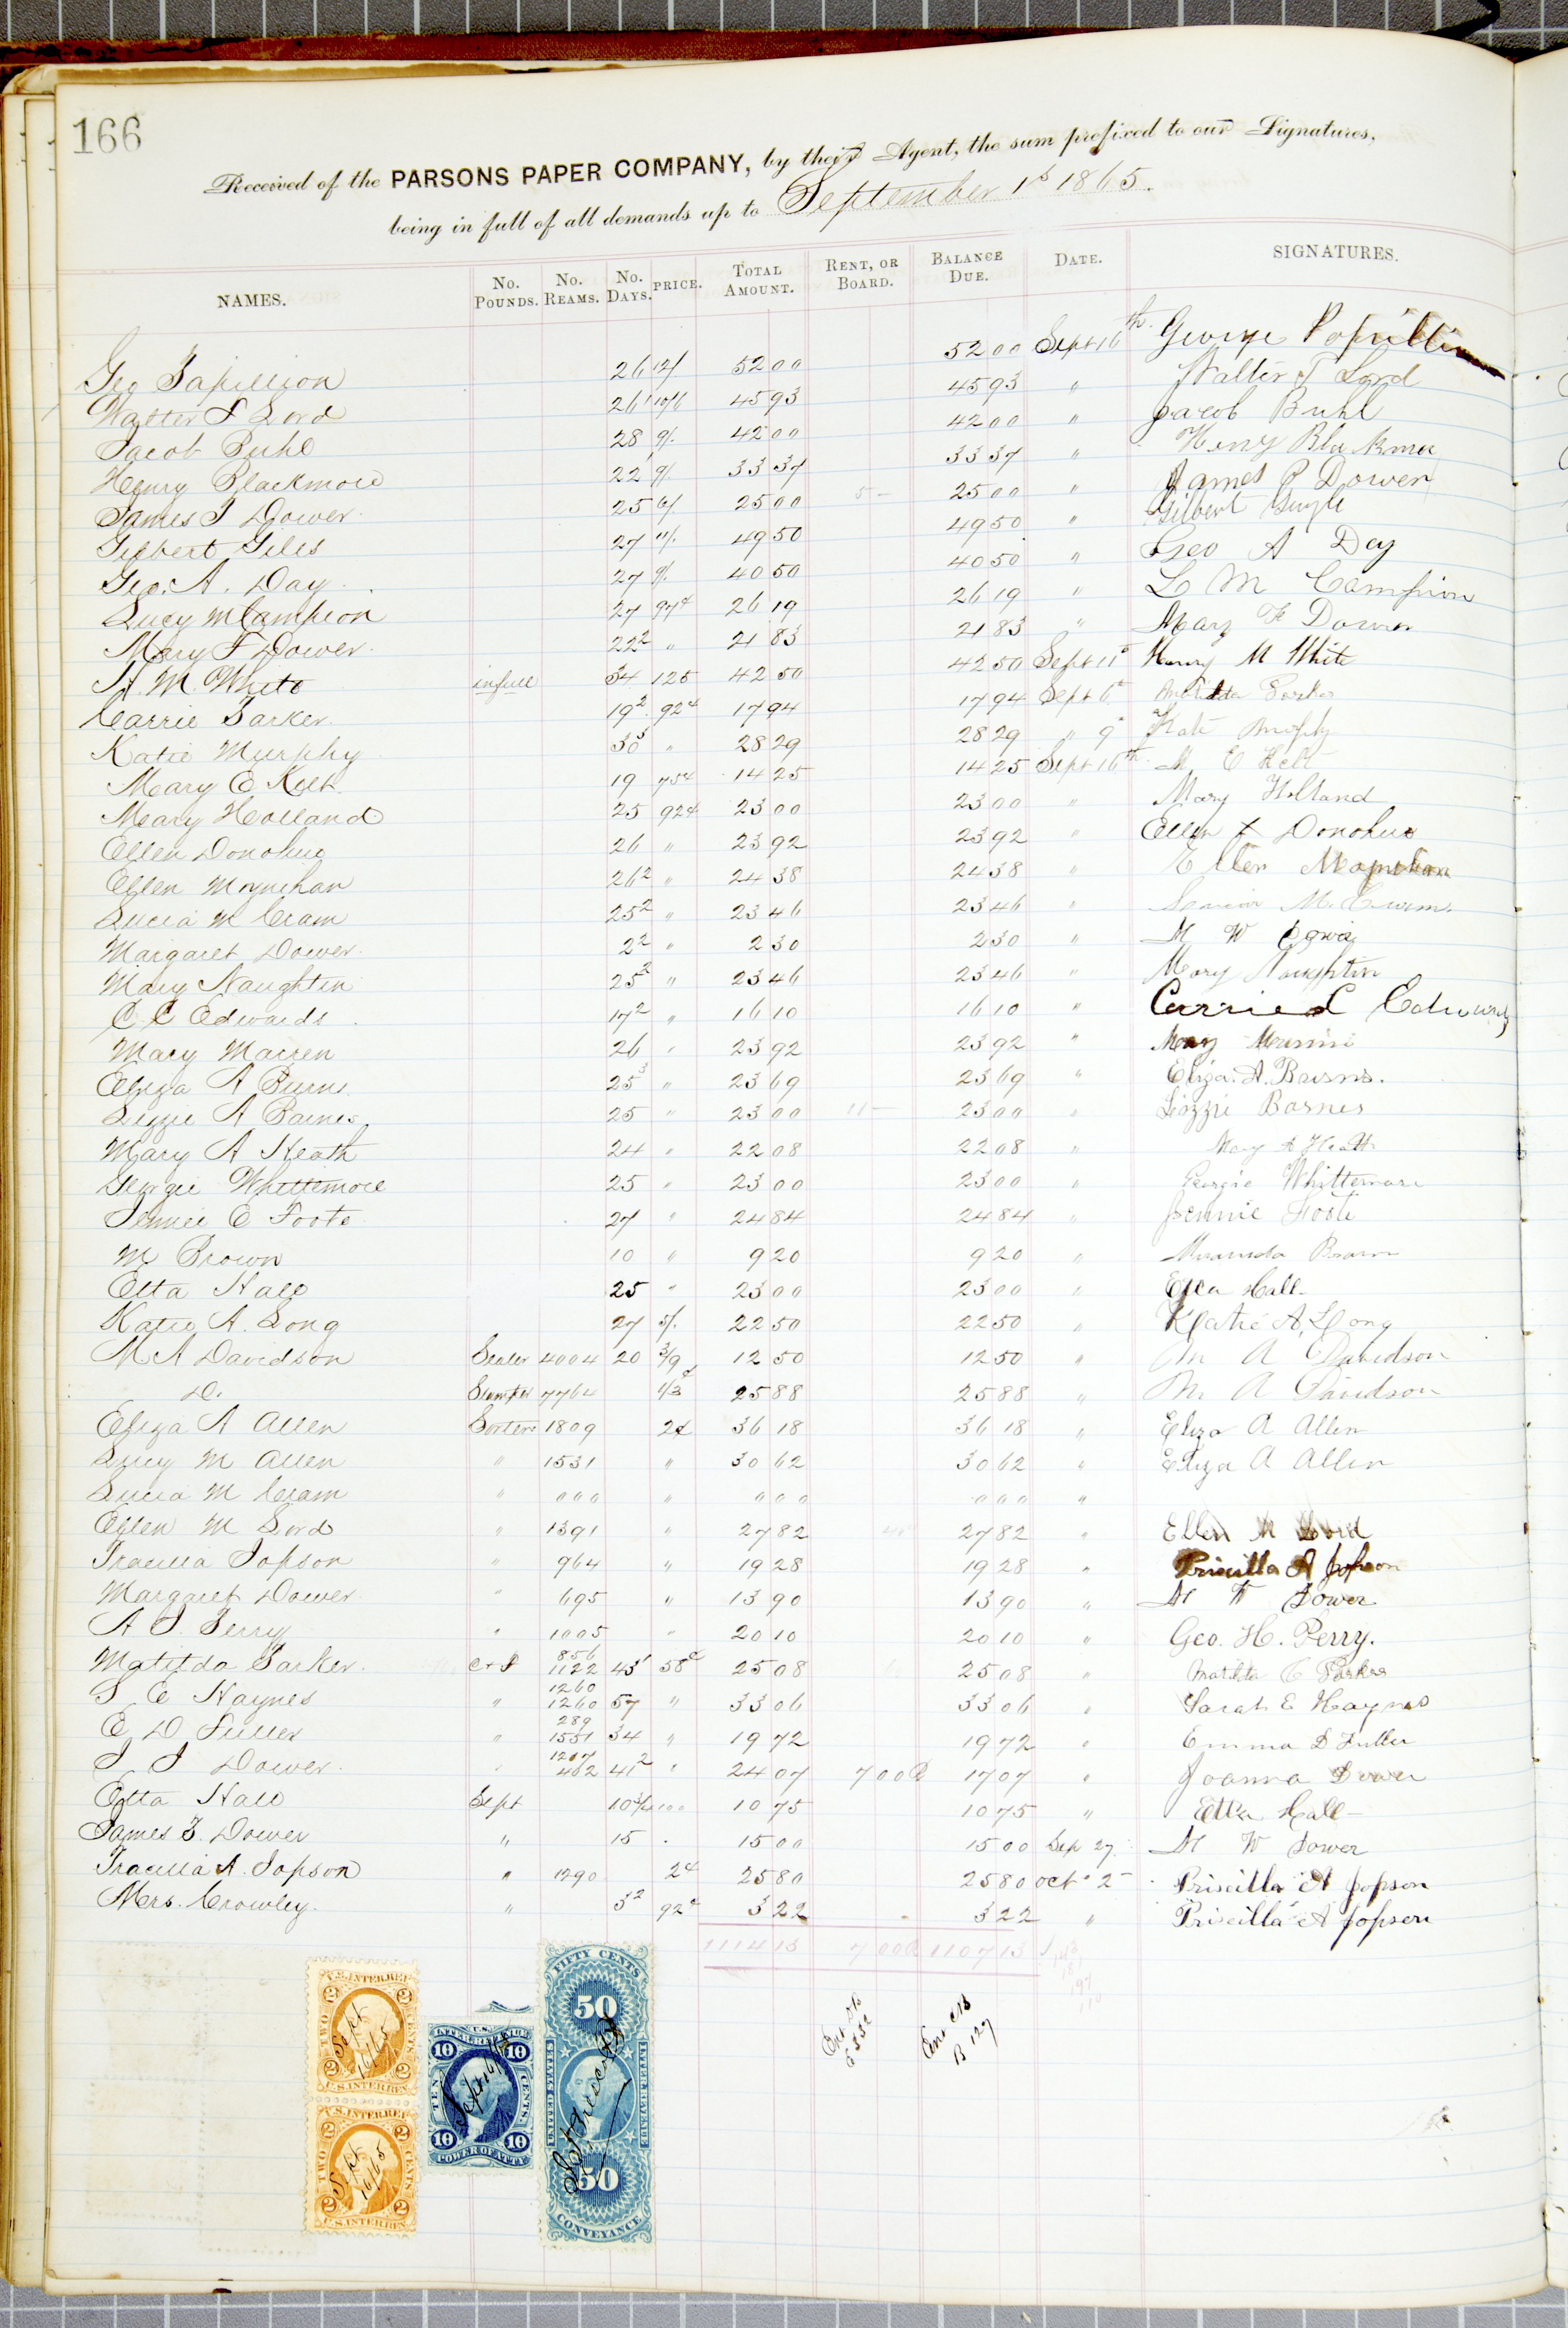 166
Received of the PARSONS PAPER COMPANY, by their Agent, the sum prefixed to our Signatures,
being in full of all demands up to September 1st 1865.
NAMES. No. POUNDS. No. REAMS. No. DAYS. PRICE. TOTAL AMOUNT. RENT, OR BOARD. BALANCE DUE. DATE. SIGNATURES.
Geo Papillion 26 12/ 52 00 52 00 Sept 16th George Papillion
Walter F Lord 26 10/6 45 93 45 93 " Walter F Lord
Jacob Buhl 28 9/. 42 00 42 00 " Jacob Buhl
Henry Blackmore 22 9/. 33 37 33 37 " Henry
James P Dower 25 6/ 25 00 5 - 25 00 " James P Dower
Gilbert Giles 27 11/. 49 50 49 50 " Gilbert
Geo. A. Day 27 9/. 40 50 40 50 " Geo A Day
Lucy M Campion 27 97¢ 26 19 26 19 " L M Campion
Mary F Dower 22² " 21 83 21 83 " Mary F Dower
H. M. White in full 34 125 42 50 42 50 Sept 11th Henry M White
Carrie Parker 19² 92¢ 17 94 17 94 Sept 6th Matilda Parker
Katie Murphy 30³ " 28 29 28 29 " 9th Kate Murphy
Mary E Kelt 19 75¢ 14 25 14 25 Sept 16th M E Kelt
Mary Holland 25 92¢ 23 00 23 00 " Mary Holland
Ellen Donohue 26 " 23 92 23 92 " Ellen X Donohue
Ellen Moynihan 26² " 24 38 24 38 " Ellen Moynihan
Lucia M Cram 25² " 23 46 23 46 " M. Cram
Margaret Dower 2² " 2 30 2 30 " M W Dower
Mary Naughtin 25² " 23 46 23 46 " Mary Naughtin
C C Edwards 17² " 16 10 16 10 " Carrie C Edwards
Mary Marren 26 " 23 92 23 92 " Mary
Eliza A Burns 25³ " 23 69 23 69 " Eliza. A. Burns.
Lizzie A Barnes 25 " 23 00 11 - 23 00 " Lizzie Barnes
Mary A Heath 24 " 22 08 22 08 " Mary A Heath
Georgie Whittemore 25 " 23 00 23 00 " Georgie Whittemore
Jennie E Foote 27 " 24 84 24 84 " Jennie Foote
M Brown 10 " 9 20 9 20 " Miranda Brown
Etta Hall 25 " 23 00 23 00 " Etta Hall
Katie A. Long 27 5/. 22 50 22 50 " Katie A. Long
M A Davidson Sealer 4004 20 3/9 12 50 12 50 " M A Davidson
Do. Stamper 7764 1/3¢ 25 88 25 88 " M A Davidson
Eliza A Allen Sorters 1809 2¢ 36 18 36 18 " Eliza A Allen
Lucy M Allen " 1531 " 30 62 30 62 " Eliza A Allen
Lucia M Cram " 000 " 0 00 0 00 "
Ellen M Lord " 1391 " 27 82 27 82 " Ellen M Lord
Pracilla Jopson " 964 " 19 28 19 28 " Priscilla A Jopson
Margaret Dower " 695 " 13 90 13 90 " M W Dower
A J. Perry " 1005 " 20 10 20 10 " Geo. H. Perry.
Matilda Parker C & P 856 1122 43¹ 58¢ 25 08 25 08 " Matilda C Parker
S E Haynes " 1260 1260 57 " 33 06 33 06 " Sarah E Haynes
E D Fuller " 289 1551 34 " 19 72 19 72 " Emma D Fuller
J J Dower " 1207 462 41² " 24 07 7 00 17 07 " Joanna Dower
Etta Hall Sept 10 3/4 100 10 75 10 75 " Etta Hall
James P. Dower " 15 . 15 00 15 00 Sep 27 M W Dower
Pracilla A. Jopson " 1290 2¢ 25 80 25 80 Oct 2 Priscilla A Jopson
Mrs. Crowley " 3² 92¢ 3 22 3 22 " Priscilla A Jopson
1114 13 7 00 1107 13
U.S. INTER. REV. TWO CENTS 2 Sept 16/65
U.S. INTER. REV. TWO CENTS 2 Sept 16/65
U.S. INTER. REVENUE TEN CENTS. 10 POWER OF ATT'Y Sept 16/65
FIFTY CENTS 50 UNITED STATES INTER. REVENUE 50 CONVEYANCE
B 127